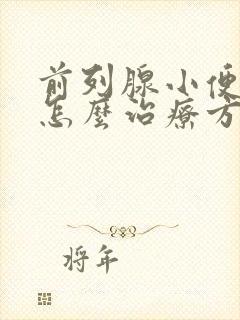 前列腺小便
怎麼治療方
将年